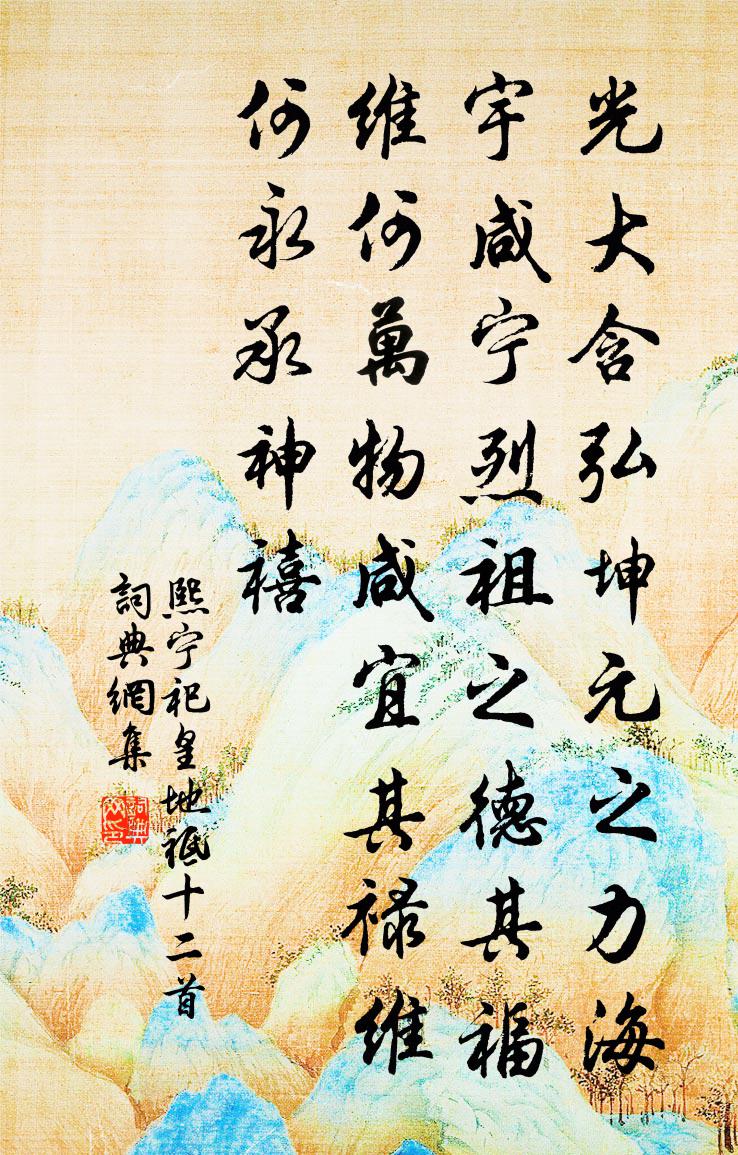 光大含弘坤元之力海
宇咸宁烈祖之德其福
維何萬物咸宜其禄維
何永承神禧
熙宁祀皇地祗十二首
詞典網集